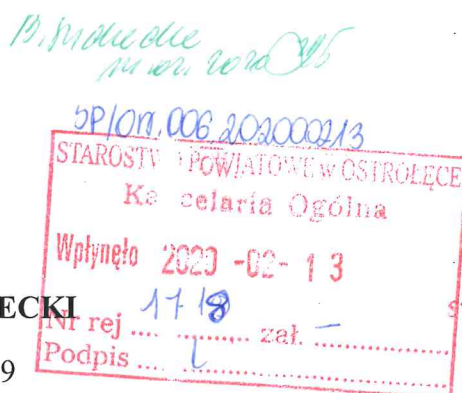 SP/OR.006.202000213
STAROSTW POWIATOWE w OSTROŁĘCE
Ka celaria Ogólna
Wpłynęło 2020 -02- 13
ECKI
Nr rej .... 1718 .... zał. –
Podpis ....
9